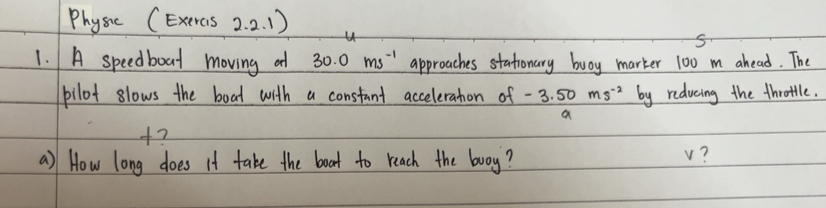 Physic (Exercis 2.2.1)
u s
1. A speedboat moving at 30.0 ms⁻¹ approaches stationary buoy marker 100 m ahead. The
pilot slows the boat with a constant acceleration of - 3.50 ms⁻² by reducing the throttle.
t? a
a) How long does it take the boat to reach the buoy? v?